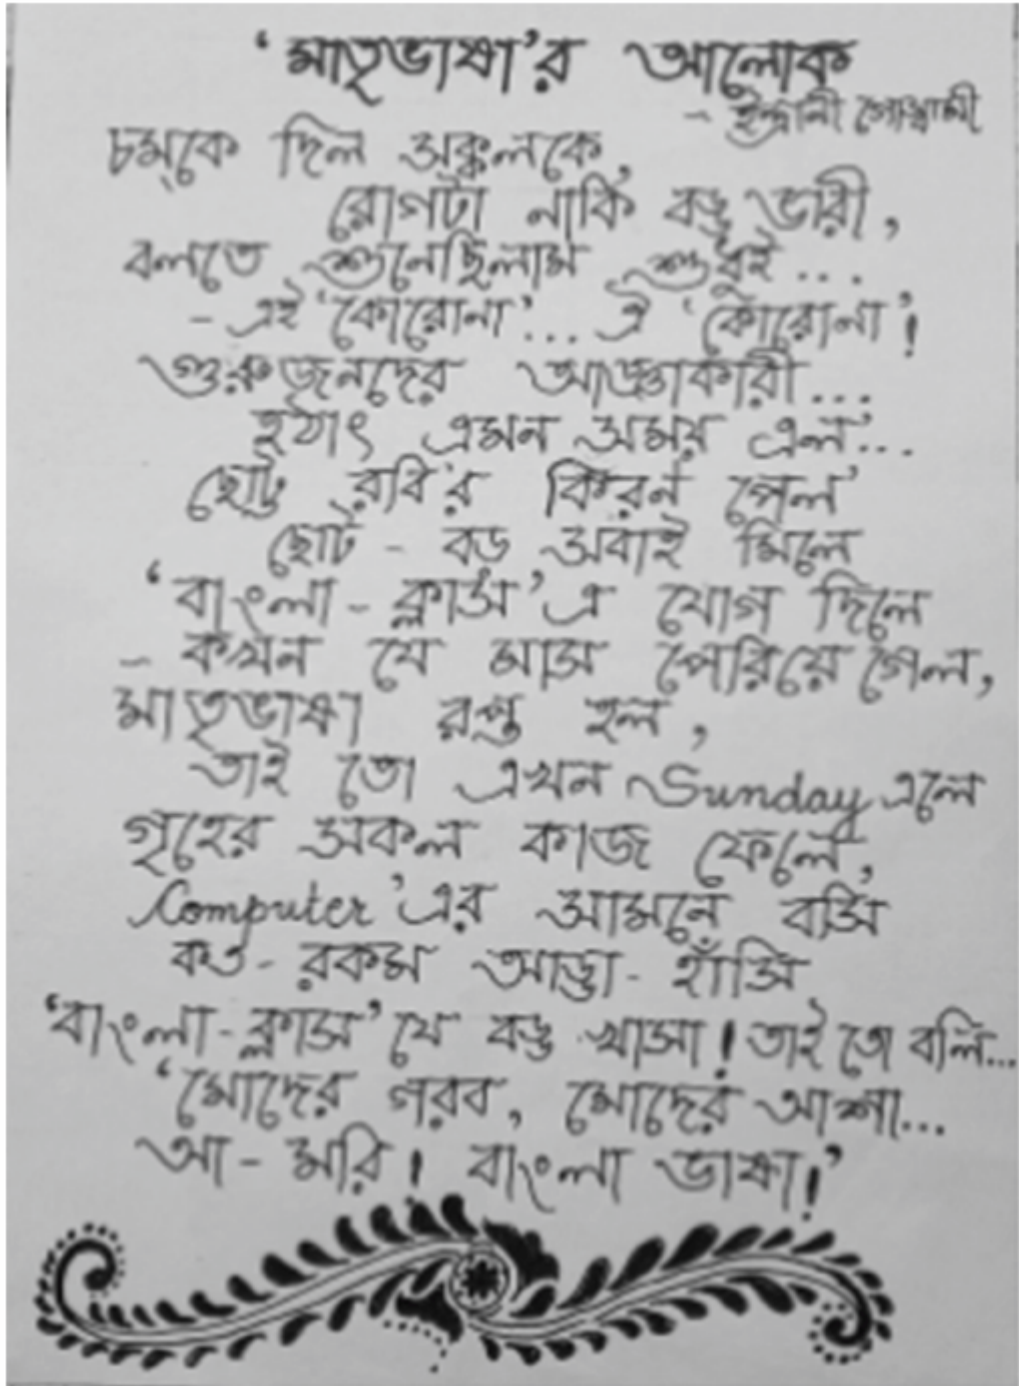 ‘মাতৃভাষা’র আলোক
- ইন্দ্রানী গোস্বামী
চম্‌কে দিল সক্কলকে,
রোগটা নাকি বড্ড ভারী,
বলতে শুনেছিলাম শুধুই...
- এই ‘কোরোনা’... ঐ ‘কোরোনা’!
গুরুজনদের আজ্ঞাকারী...
হঠাৎ এমন সময় এল’...
ছোট্ট রবি'র কিরন পেল’
ছোট - বড় সবাই মিলে
‘বাংলা - ক্লাস’এ যোগ দিলে
- কখন যে মাস পেরিয়ে গেল,
মাতৃভাষা রপ্ত হল,
তাই তো এখন Sunday এলে
গৃহের সকল কাজ ফেলে,
Computer’এর সামনে বসি
কত - রকম আড্ডা - হাঁসি
‘বাংলা - ক্লাস’ যে বড্ড খাসা! তাই তো বলি...
‘মোদের গরব, মোদের আশা...
আ - মরি! বাংলা ভাষা!’